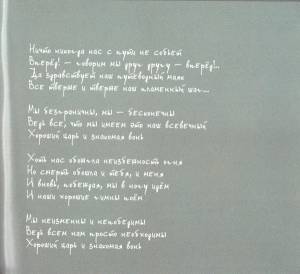 Ничто никогда нас с пути не собьёт
Вперёд! – говорим мы друг другу – вперёд!..
Да здравствует наш путеводный маяк
Все твёрже и твёрже наш пламенный шаг...

Мы безграничны, мы – бесконечны
Ведь всё, что мы имеем это наш всевечный
Хороший царь и знакомая вонь

Хоть нас обожгла неизбежность огня
Но смерть обошла и тебя, и меня
И вновь, побеждая, мы в ногу идём
И наши хорошие гимны поём

Мы неизменны и непобедимы
Ведь всем нам просто необходимы
Хороший царь и знакомая вонь